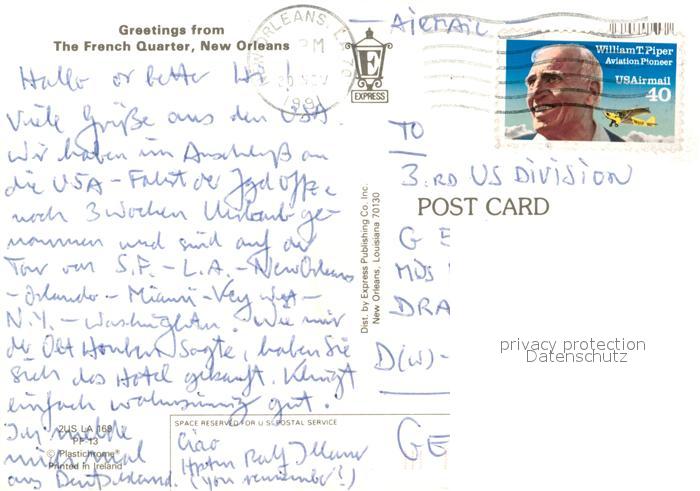 Greetings from
The French Quarter, New Orleans
NEW ORLEANS, LA
PM
20 NOV
1991
E
EXPRESS
AIRMAIL
William T. Piper
Aviation Pioneer
USAirmail
40
Hallo or better Hi!
Viele Grüße aus den USA.
Wir haben im Anschluß an
die USA-Fahrt der
noch 3 Wochen Urlaub ge-
nommen und sind auf der
Tour von S.F. - L.A. - New Orleans
- Orlando - Miami - Key West -
N.Y. - Washington. Wie mir
der sagte, haben Sie
sich das Hotel gekauft. Klingt
einfach wahnsinnig gut!
Ich melde
mich mal
aus Deutschland. (you remember?)
Ciao
Ralf
2US LA 169
PF-13
© Plastichrome®
Printed in Ireland
SPACE RESERVED FOR U.S. POSTAL SERVICE
Dist. by Express Publishing Co. Inc.
New Orleans, Louisiana 70130
TO
3.RD US DIVISION
POST CARD
GE
DRA
D(W)-
GE
privacy protection
Datenschutz